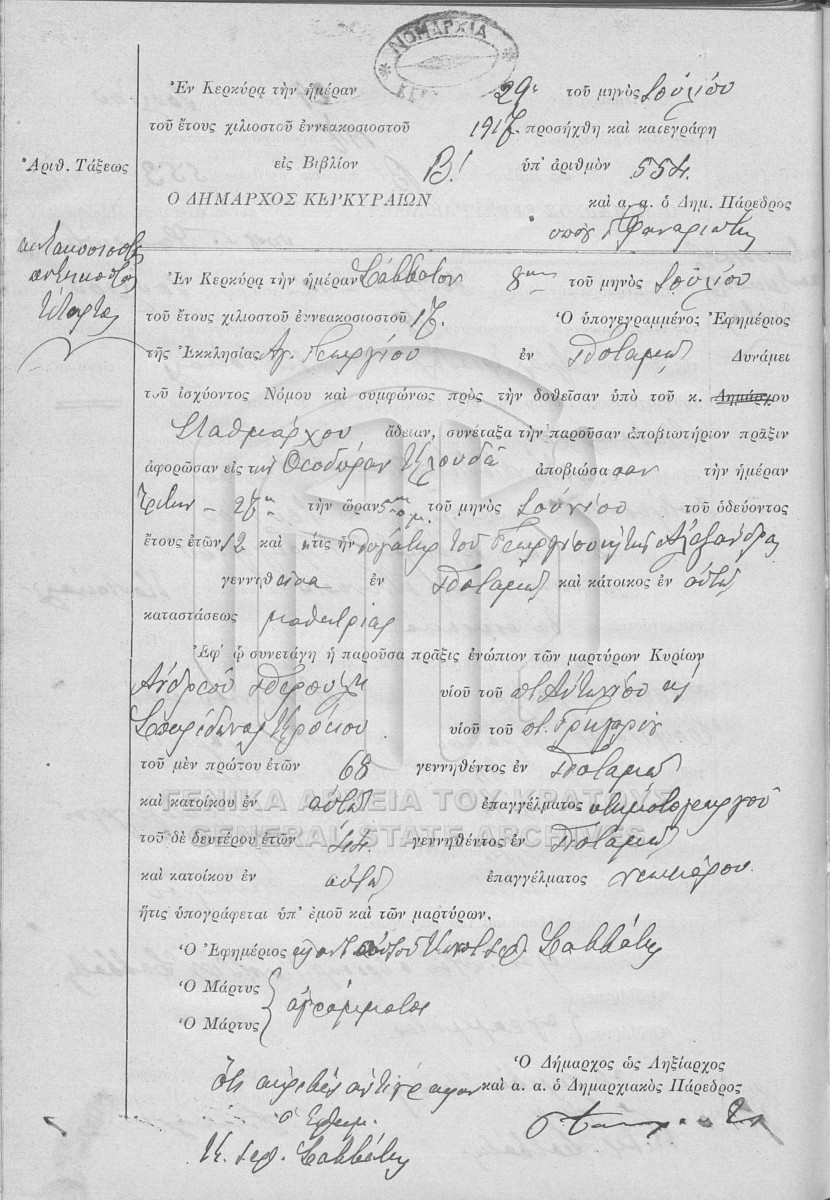 ΝΟΜΑΡΧΙΑ
Ἐν Κερκύρᾳ τὴν ἡμέραν 29ῃ τοῦ μηνὸς Ἰουλίου
τοῦ ἔτους χιλιοστοῦ ἐννεακοσιοστοῦ 1917. προσήχθη καὶ κατεγράφη
Ἀριθ. Τάξεως
εἰς Βιβλίον Β! ὑπ' ἀριθμὸν 554.
Ο ΔΗΜΑΡΧΟΣ ΚΕΡΚΥΡΑΙΩΝ καὶ α. α. ὁ Δημ. Πάρεδρος
πεντακοσιοστὸς
τέταρτος
Ἐν Κερκύρᾳ τὴν ἡμέραν Σάββατον 8ην τοῦ μηνὸς Ἰουλίου
τοῦ ἔτους χιλιοστοῦ ἐννεακοσιοστοῦ 17. Ὁ ὑπογεγραμμένος Ἐφημέριος
τῆς Ἐκκλησίας Ἁγ. Γεωργίου ἐν Ποταμῷ Δυνάμει
τοῦ ἰσχύοντος Νόμου καὶ συμφώνως πρὸς τὴν δοθεῖσαν ὑπὸ τοῦ κ. Δημάρχου
Σταθμάρχου ἄδειαν, συνέταξα τὴν παροῦσαν ἀποβιωτήριον πρᾶξιν
ἀφορῶσαν εἰς τὴν Θεοδώραν ἀποβιώσασαν τὴν ἡμέραν
Τρίτην 27ην τὴν ὥραν 5ην τοῦ μηνὸς Ἰουνίου τοῦ ὁδεύοντος
ἔτους ἐτῶν 12 καὶ ἥτις ἦν θυγάτηρ τοῦ Γεωργίου κ τῆς Ἀλεξάνδρας
γεννηθεῖσα ἐν Ποταμῷ καὶ κάτοικος ἐν αὐτῷ
καταστάσεως μαθητρίας
Ἐφ' ᾧ συνετάγη ἡ παροῦσα πρᾶξις ἐνώπιον τῶν μαρτύρων Κυρίων
Ἀνδρέου υἱοῦ τοῦ π. Ἀντωνίου κ
Σπυρίδωνος υἱοῦ τοῦ π. Γρηγορίου
τοῦ μὲν πρώτου ἐτῶν 68 γεννηθέντος ἐν Ποταμῷ
καὶ κατοίκου ἐν αὐτῷ ἐπαγγέλματος κτηματογεωργοῦ
ΓΕΝΙΚΑ ΑΡΧΕΙΑ ΤΟΥ ΚΡΑΤΟΥΣ
GENERAL STATE ARCHIVES
τοῦ δὲ δευτέρου ἐτῶν γεννηθέντος ἐν Ποταμῷ
καὶ κατοίκου ἐν αὐτῷ ἐπαγγέλματος
ἥτις ὑπογράφεται ὑπ' ἐμοῦ καὶ τῶν μαρτύρων.
Ὁ Ἐφημέριος Σαββάνης
Ὁ Μάρτυς
ἀγράμματοι
Ὁ Μάρτυς
Ὁ Δήμαρχος ὡς Ληξίαρχος
Ὅτι ἀκριβὲς ἀντίγραφον καὶ α. α. ὁ Δημαρχιακὸς Πάρεδρος
ὁ Ἐφημ.
Σαββάνης